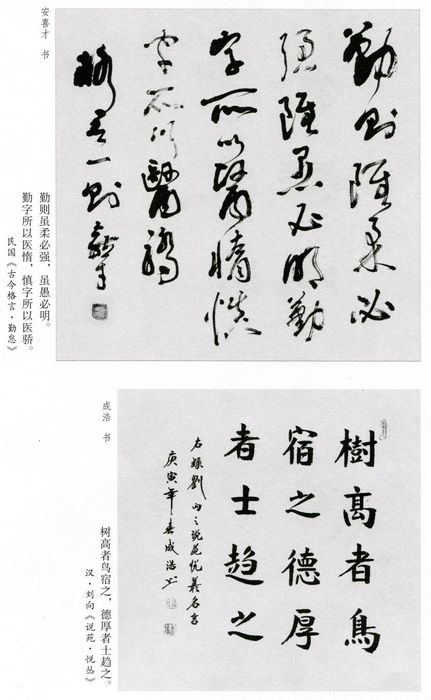 勤則雖柔必
強雖愚必明勤
字所以醫惰慎
字所以醫驕
格言一則 喜才
安喜才 书
勤则虽柔必强，虽愚必明。
勤字所以医惰，慎字所以医骄。
民国《古今格言·勤怠》
樹高者鳥
宿之德厚
者士趨之
右錄劉向之說苑悦叢名言
庚寅年春成浩书
成浩 书
树高者鸟宿之，德厚者士趋之。
汉·刘向《说苑·悦丛》